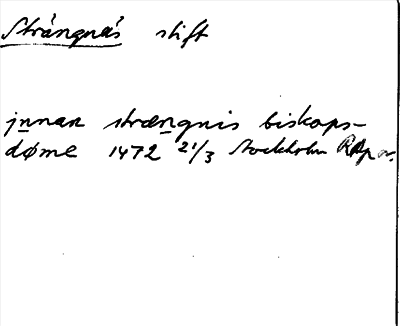 Strängnäs stift
jnnan strængnis biskops-
døme 1472 21/3 Stockholm RAp